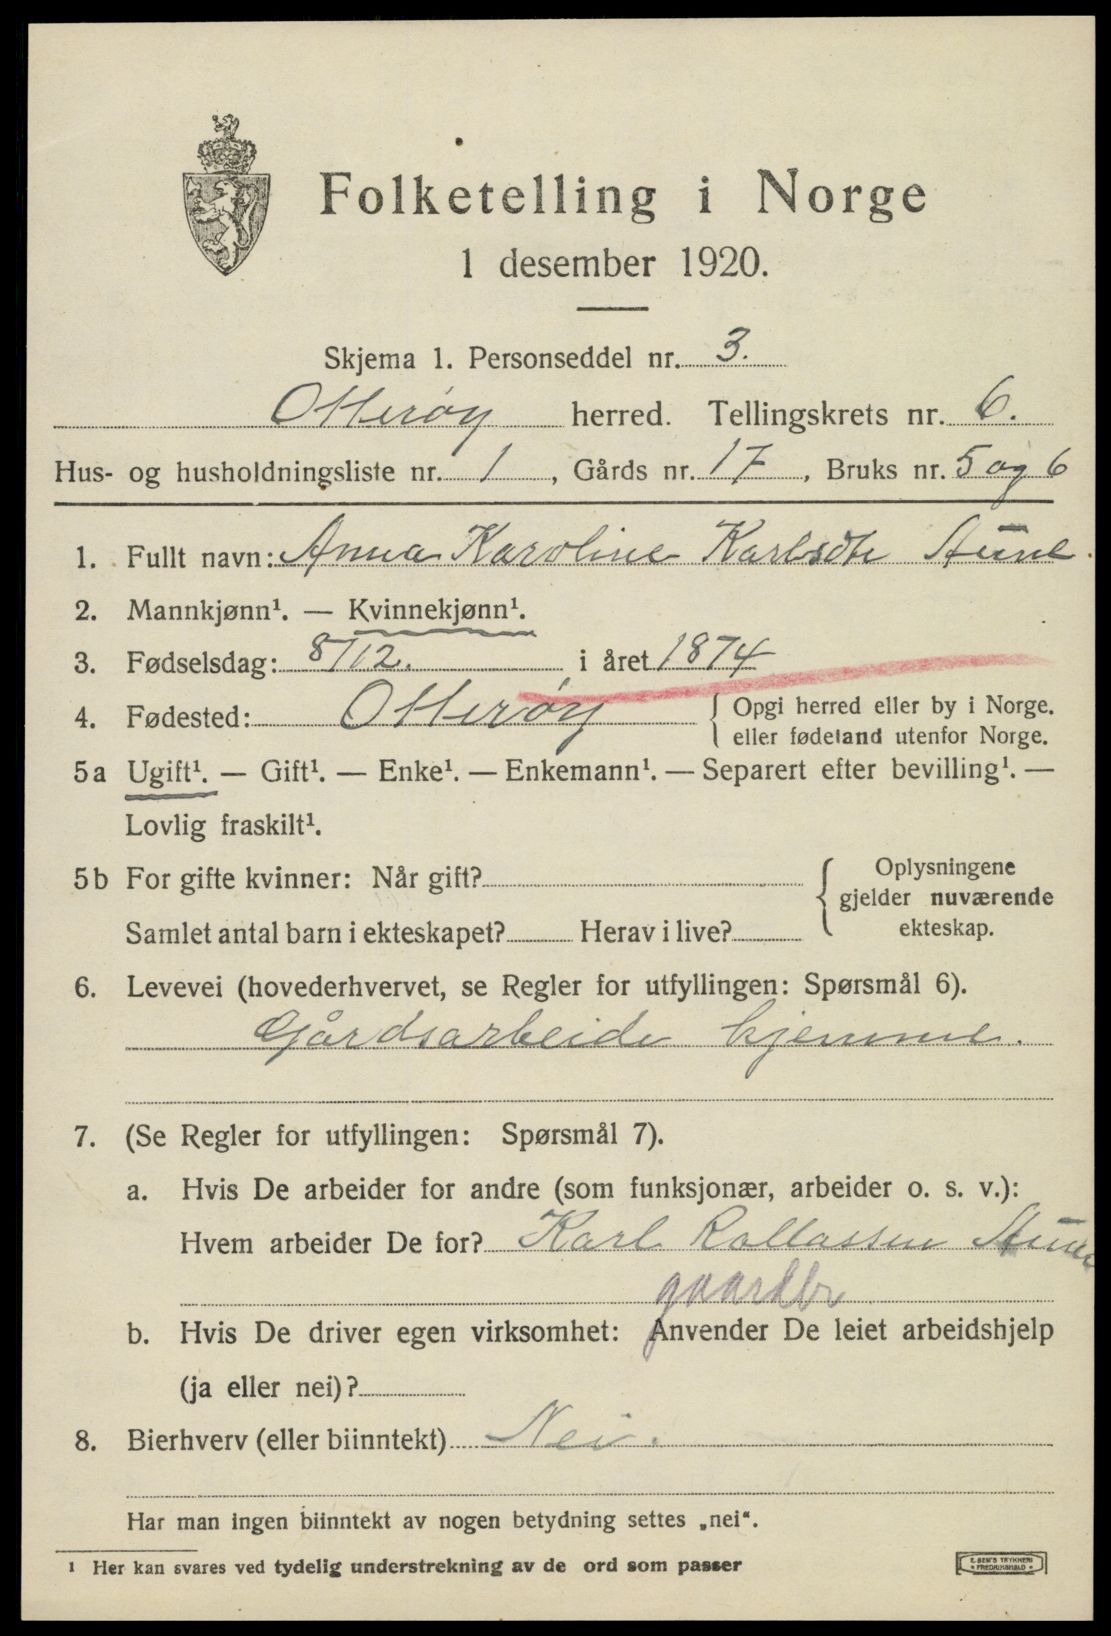 Folketelling i Norge
1 desember 1920.
Skjema 1. Personseddel nr. 3.
Otterøy herred. Tellingskrets nr. 6.
Hus- og husholdningsliste nr. 1, Gårds nr. 17, Bruks nr. 5 og 6
1. Fullt navn: Anna Karoline Karlsdtr Aune
2. Mannkjønn¹. — Kvinnekjønn¹.
3. Fødselsdag: 8/12. i året 1874
4. Fødested: Otterøy { Opgi herred eller by i Norge.
eller fødeland utenfor Norge.
5a Ugift¹. — Gift¹. — Enke¹. — Enkemann¹. — Separert efter bevilling¹. —
Lovlig fraskilt¹.
5b For gifte kvinner: Når gift? { Oplysningene
gjelder nuværende
ekteskap.
Samlet antal barn i ekteskapet? Herav i live?
6. Levevei (hovederhvervet, se Regler for utfyllingen: Spørsmål 6).
Gårdsarbeide hjemme.
7. (Se Regler for utfyllingen: Spørsmål 7).
a. Hvis De arbeider for andre (som funksjonær, arbeider o. s. v.):
Hvem arbeider De for? Karl Rollassen Aune
gaardbr
b. Hvis De driver egen virksomhet: Anvender De leiet arbeidshjelp
(ja eller nei)?
8. Bierhverv (eller biinntekt) Nei.
Har man ingen biinntekt av nogen betydning settes „nei“.
¹ Her kan svares ved tydelig understrekning av de ord som passer
E. SEM'S TRYKKERI
FREDRIKSHALD